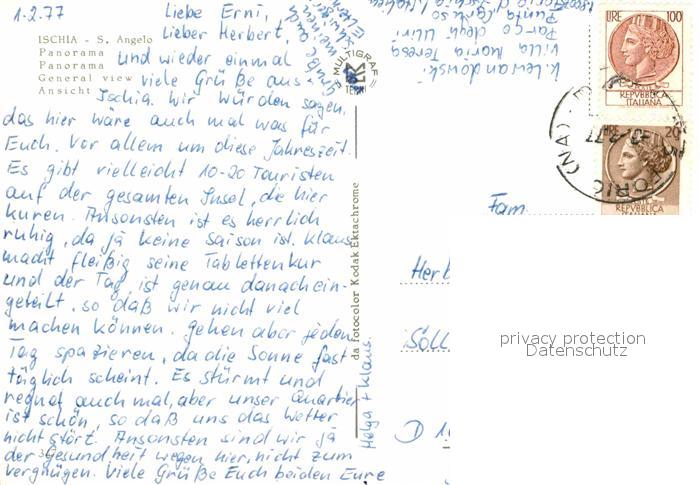 1.2.77
Liebe Erni,
Lieber Herbert,
ISCHIA - S. Angelo
Panorama
Panorama
General view
Ansicht
und wieder einmal
viele Grüße aus
Ischia. Wir würden sagen,
das hier wäre auch mal was für
Euch. Vor allem um diese Jahreszeit.
Es gibt vielleicht 10-20 Touristen
auf der gesamten Insel, die hier
kuren. Ansonsten ist es herrlich
ruhig, da ja keine Saison ist. Klaus
macht fleißig seine Tablettenkur
und der Tag ist genau danach ein-
geteilt, so daß wir nicht viel
machen können. Gehen aber jeden
Tag spazieren, da die Sonne fast
täglich scheint. Es stürmt und
regnet auch mal, aber unser Quartier
ist schön, so daß uns das Wetter
nicht stört. Ansonsten sind wir ja
der Gesundheit wegen hier, nicht zum
Vergnügen. Viele Grüße Euch beiden Eure
Helga + Klaus.
MULTIGRAF
TERNI
da fotocolor Kodak Ektachrome
K. Lewandowski
Villa Maria Teresa
Parco degli Ulivi
Punta
LIRE 100
REPVBBLICA
ITALIANA
LIRE 20
REPVBBLICA
Fam.
Herb
Soll
D 1
privacy protection
Datenschutz